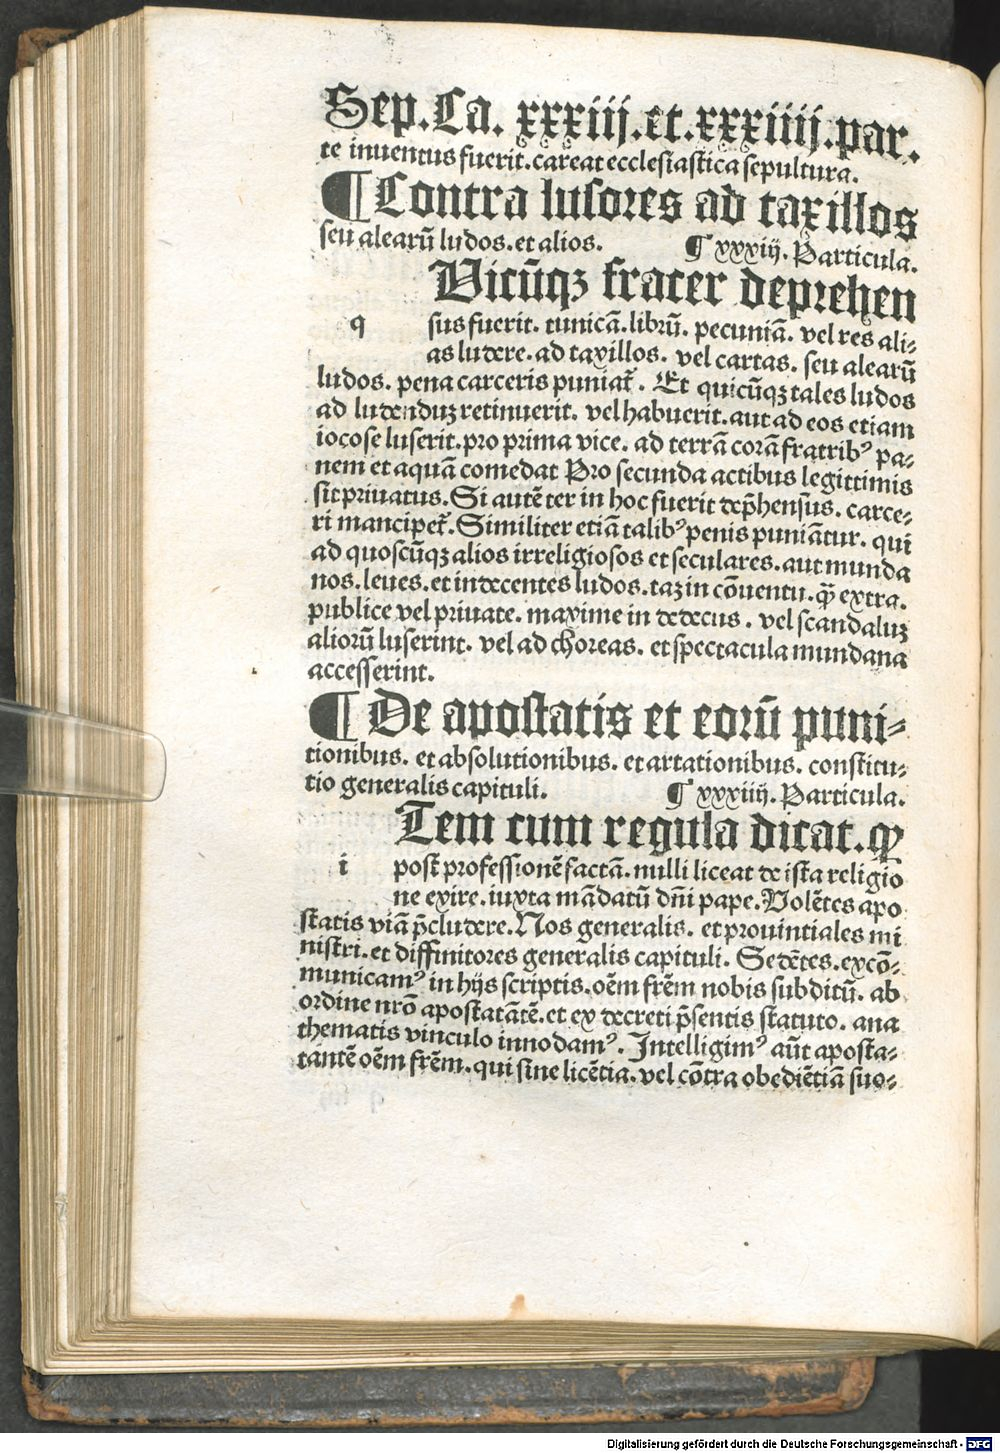 Sep. Ca. xxxiij. et. xxxiiij. par.
te inuentus fuerit. careat ecclesiastica sepultura.
¶ Contra lusores ad taxillos
seu alearū ludos. et alios. ¶ xxxiij. Particula.
Uicūqꝫ frater deprehen
q sus fuerit. tunicā. librū. pecuniā. vel res ali⸗
as ludere. ad taxillos. vel cartas. seu alearū
ludos. pena carceris puniat̄. Et quicūqꝫ tales ludos
ad ludenduꝫ retinuerit. vel habuerit. aut ad eos etiam
iocose luserit. pro prima vice. ad terrā corā fratribꝰ pa⸗
nem et aquā comedat Pro secunda actibus legittimis
sit priuatus. Si autē ter in hoc fuerit dep̄hensus. carce⸗
ri mancipet̄. Similiter etiā talibꝰ penis puniātur. qui
ad quoscūqꝫ alios irreligiosos et seculares. aut munda
nos. leues. et indecentes ludos. taꝫ in cōuentu. qꝫ extra.
publice vel priuate. maxime in dedecus. vel scandaluꝫ
aliorū luserint. vel ad choreas. et spectacula mundana
accesserint.
¶ De apostatis et eorū puni⸗
tionibus. et absolutionibus. et artationibus. constitu⸗
tio generalis capituli. ¶ xxxiiij. Particula.
Tem cum regula dicat. ꝙ
i post professionē factā. nulli liceat de ista religio
ne exire. iuxta mādatū dn̄i pape. Volētes apo
statis viā p̄cludere. Nos generalis. et prouintiales mi
nistri. et diffinitores generalis capituli. Sedētes. excō⸗
municamꝰ in hijs scriptis. oēm frēm nobis subditū. ab
ordine nrō apostatātē. et ex decreti p̄sentis statuto. ana
thematis vinculo innodamꝰ. Intelligimꝰ aūt aposta⸗
tantē oēm frēm. qui sine licētia. vel cōtra obediētiā suo⸗
Digitalisierung gefördert durch die Deutsche Forschungsgemeinschaft - DFG